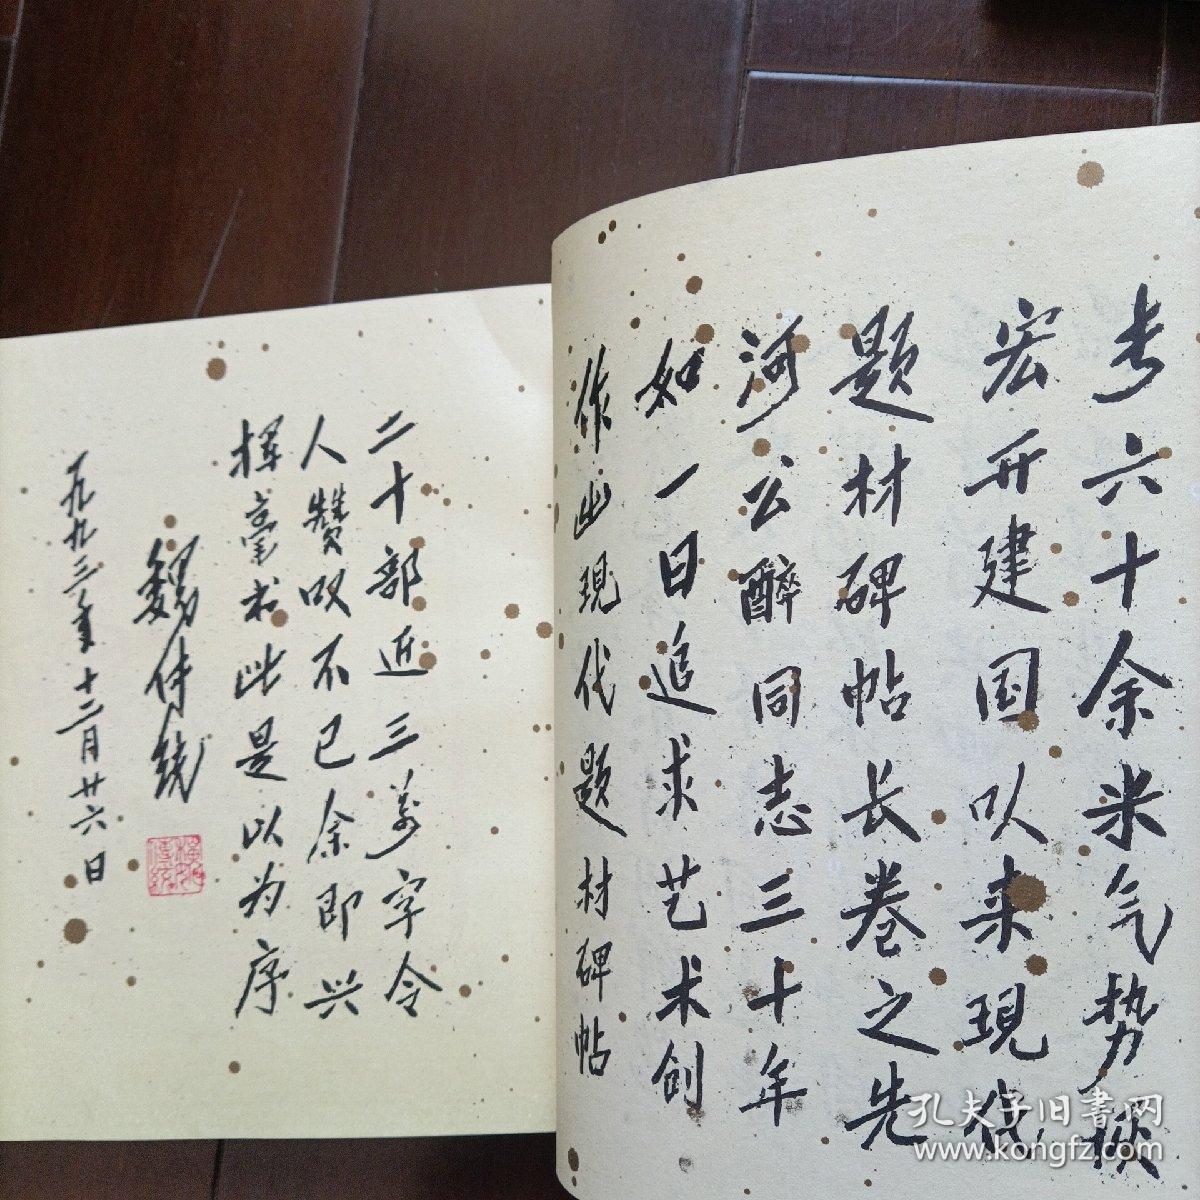 长六十余米气势恢
宏开建国以来現代
题材碑帖长卷之先
河公醉同志三十年
如一日追求艺术创
作出現代题材碑帖
二十部近三万字令
人赞叹不已余即兴
挥毫书此是以为序
魏传统
一九九三年十二月廿六日
傳統
孔夫子旧书网
www.kongfz.com